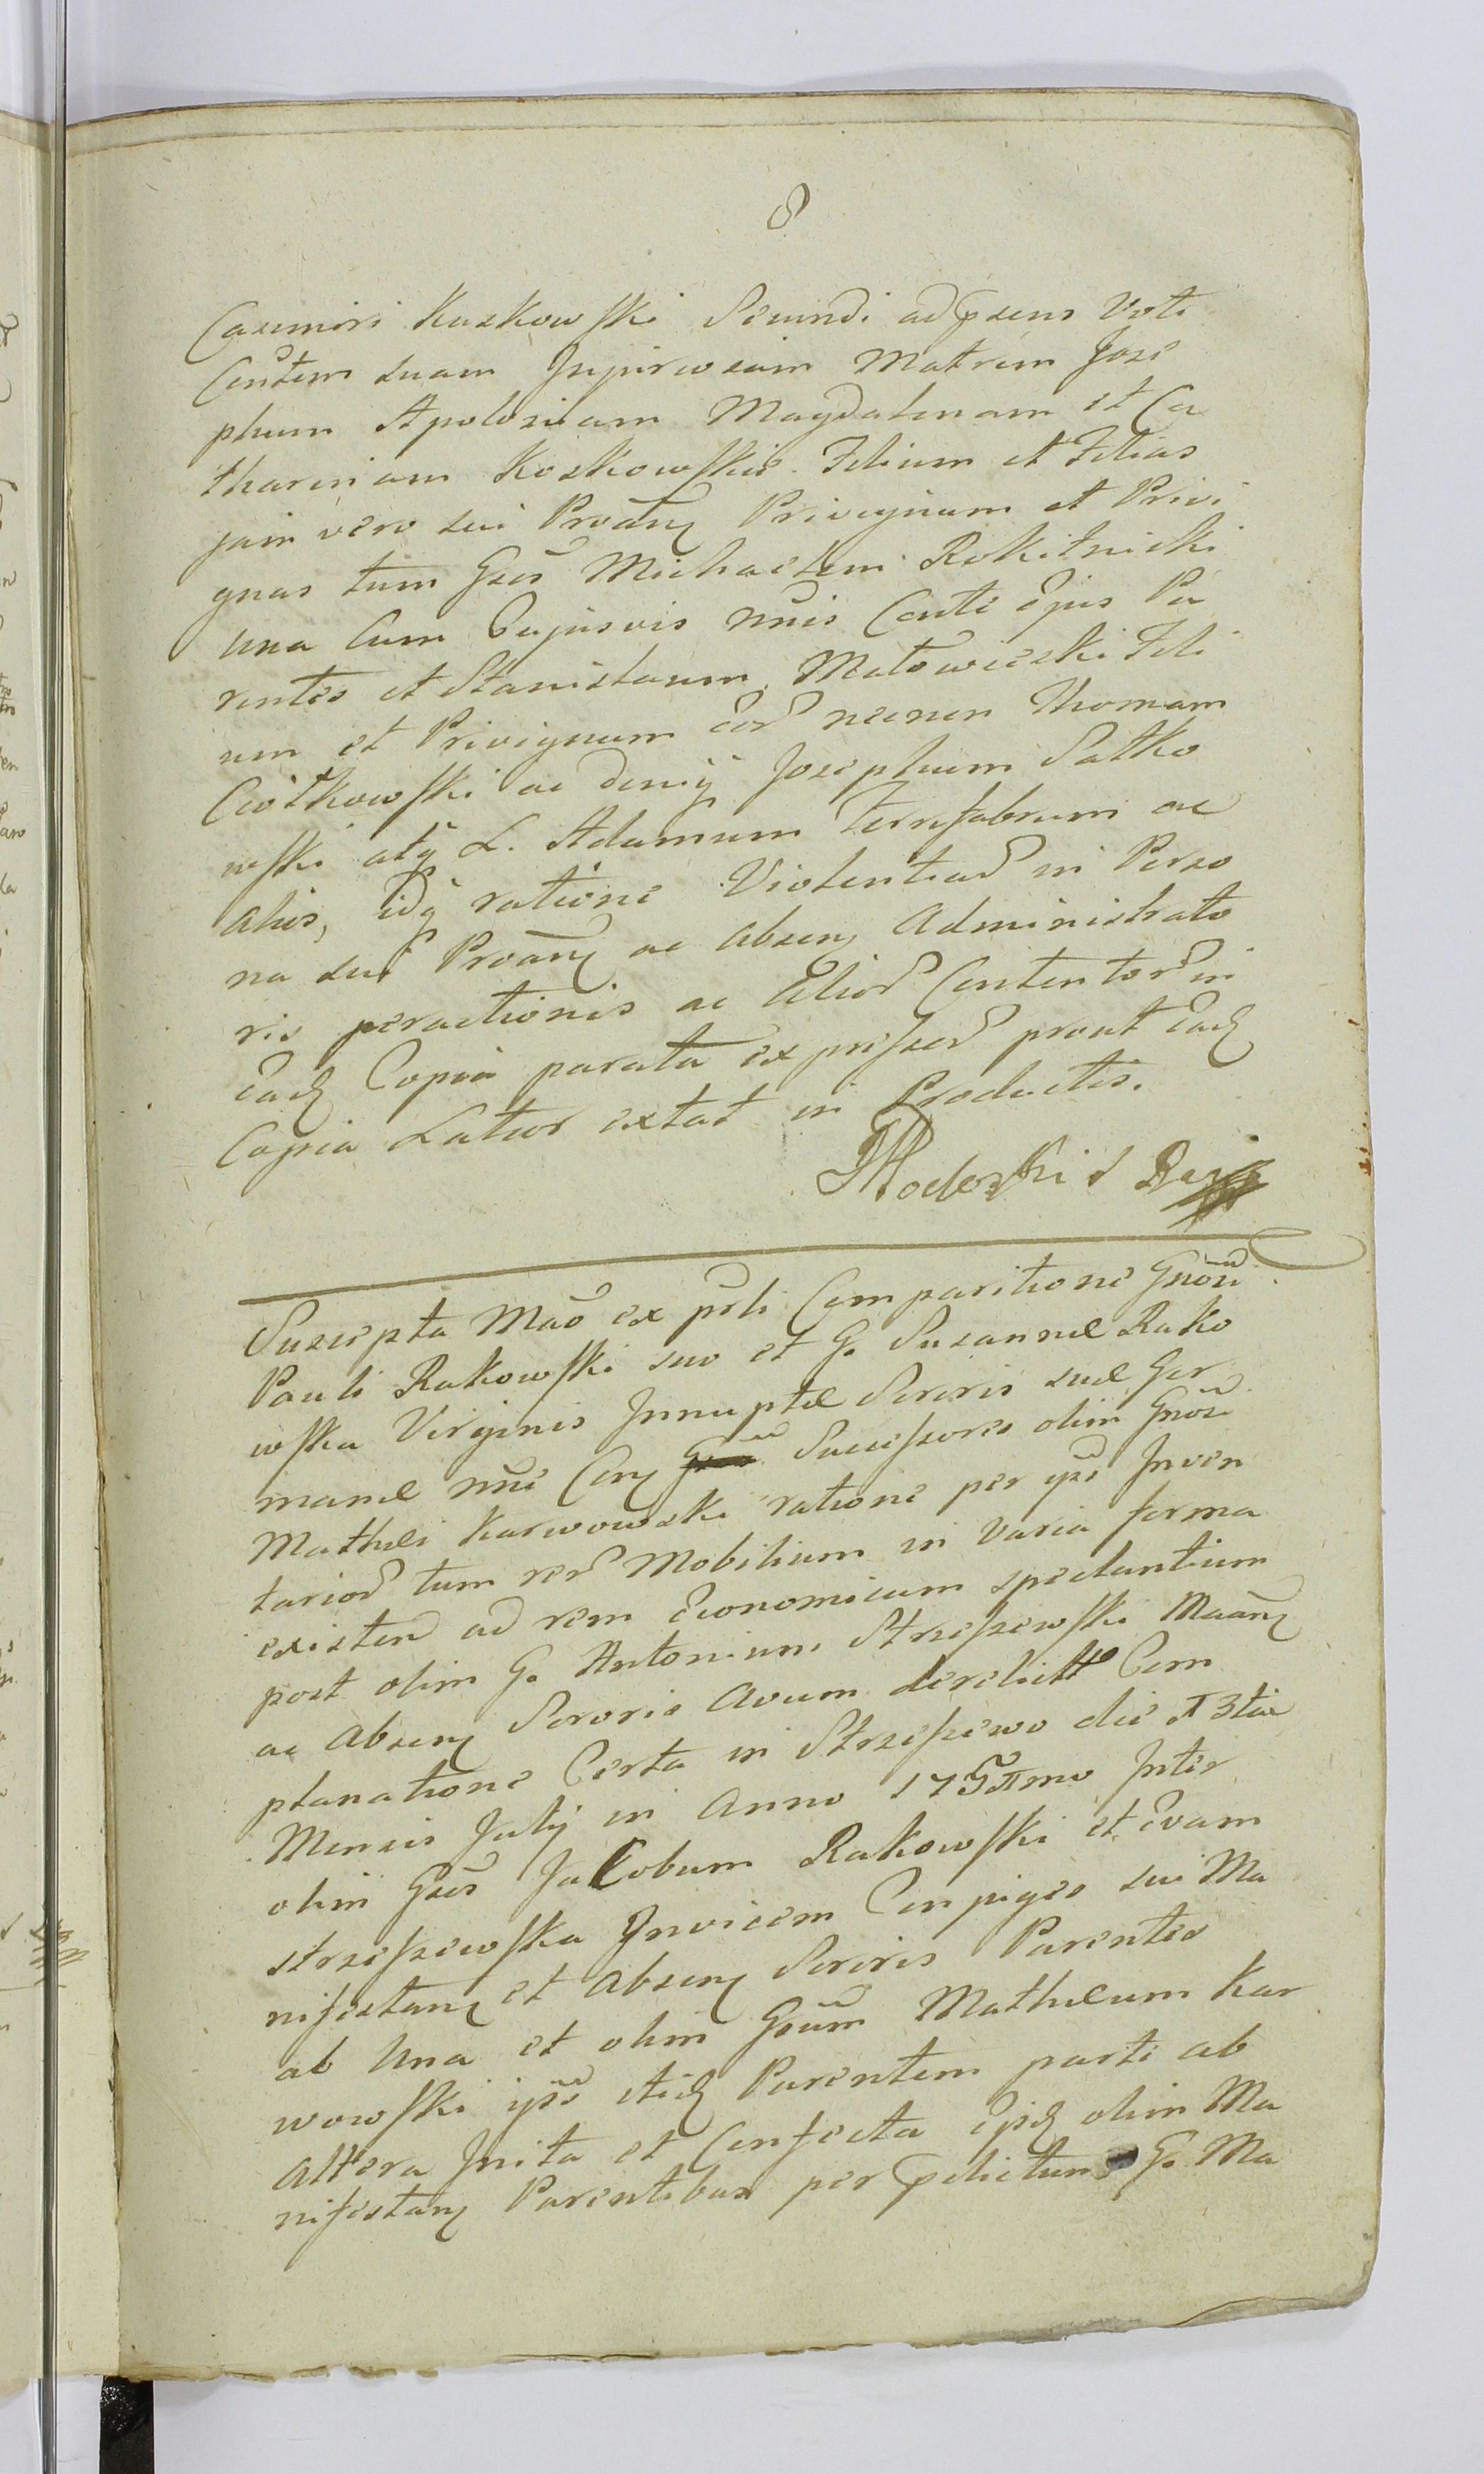 8
Casimiri Kuskowski Secundi ad psens Voti
Consortem suam Matrem Jose
phum Apoloniam Magdalenam et Ca
tharinam Koskowskie Filium et Filias
jam vero sui Protãn Privignum et Privi
gnas tum Gsos Michaelem Rokitnicki
una Cum Cujusvis nõis Conte ejus Pa
rentes et Stanislaum Matowieski Fili
um et Privignum eor necnon Thomam
Ciołkowski ac deniq Josephum Sulko
wski atq L. Adamum ac
alios, idq ratione Violentiar in Perso
na sui Protãn ac absen Administrato
ris peractionis ac alior Contentor in
ead Copia parata expressor prout ead
Copia Latior extat in Productis.
Suscepta Mão ex psli Comparitione Gnosi
Pauli Rakowski suo et G. Susannæ Rako
wska Virginis Innuptæ Sororis suæ Ger
manæ nõie Con Successores olim Gnosi
Mathæi Karwowski ratione per ips Inven
tarior tum rer Mobilium in varia forma
existen ad rem Economicam spectantium
post olim G. Antonium Strzeszewski Maãn
ac absen Sororis avum derelictt Com
planatione Certa in Strzeszewo die 13tia
Mensis Julij in Anno Inter
olim Gsos Jacobum Rakowski et Evam
Strzeszewska Invicem Conjuges sui Ma
nifestan et absen Sororis Parentes
ab una et olim Gsum Mathæum Kar
wowski ips itid Parentem parti ab
altera Inita et Confecta ejsd olim Ma
nifestan Parentibus per G. Ma